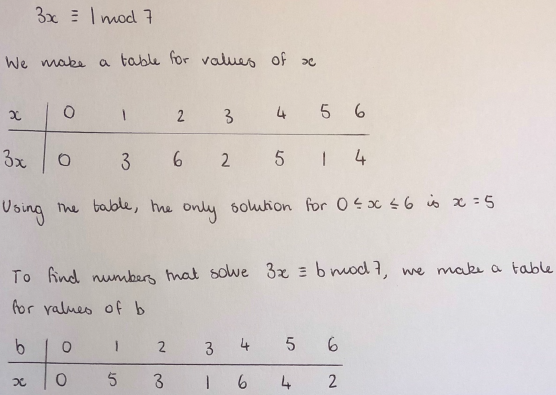 3x ≡ 1 mod 7
We make a table for values of x
x | 0 1 2 3 4 5 6
3x | 0 3 6 2 5 1 4
Using the table, the only solution for 0 ≤ x ≤ 6 is x = 5
To find numbers that solve 3x ≡ b mod 7, we make a table
for values of b
b | 0 1 2 3 4 5 6
x | 0 5 3 1 6 4 2